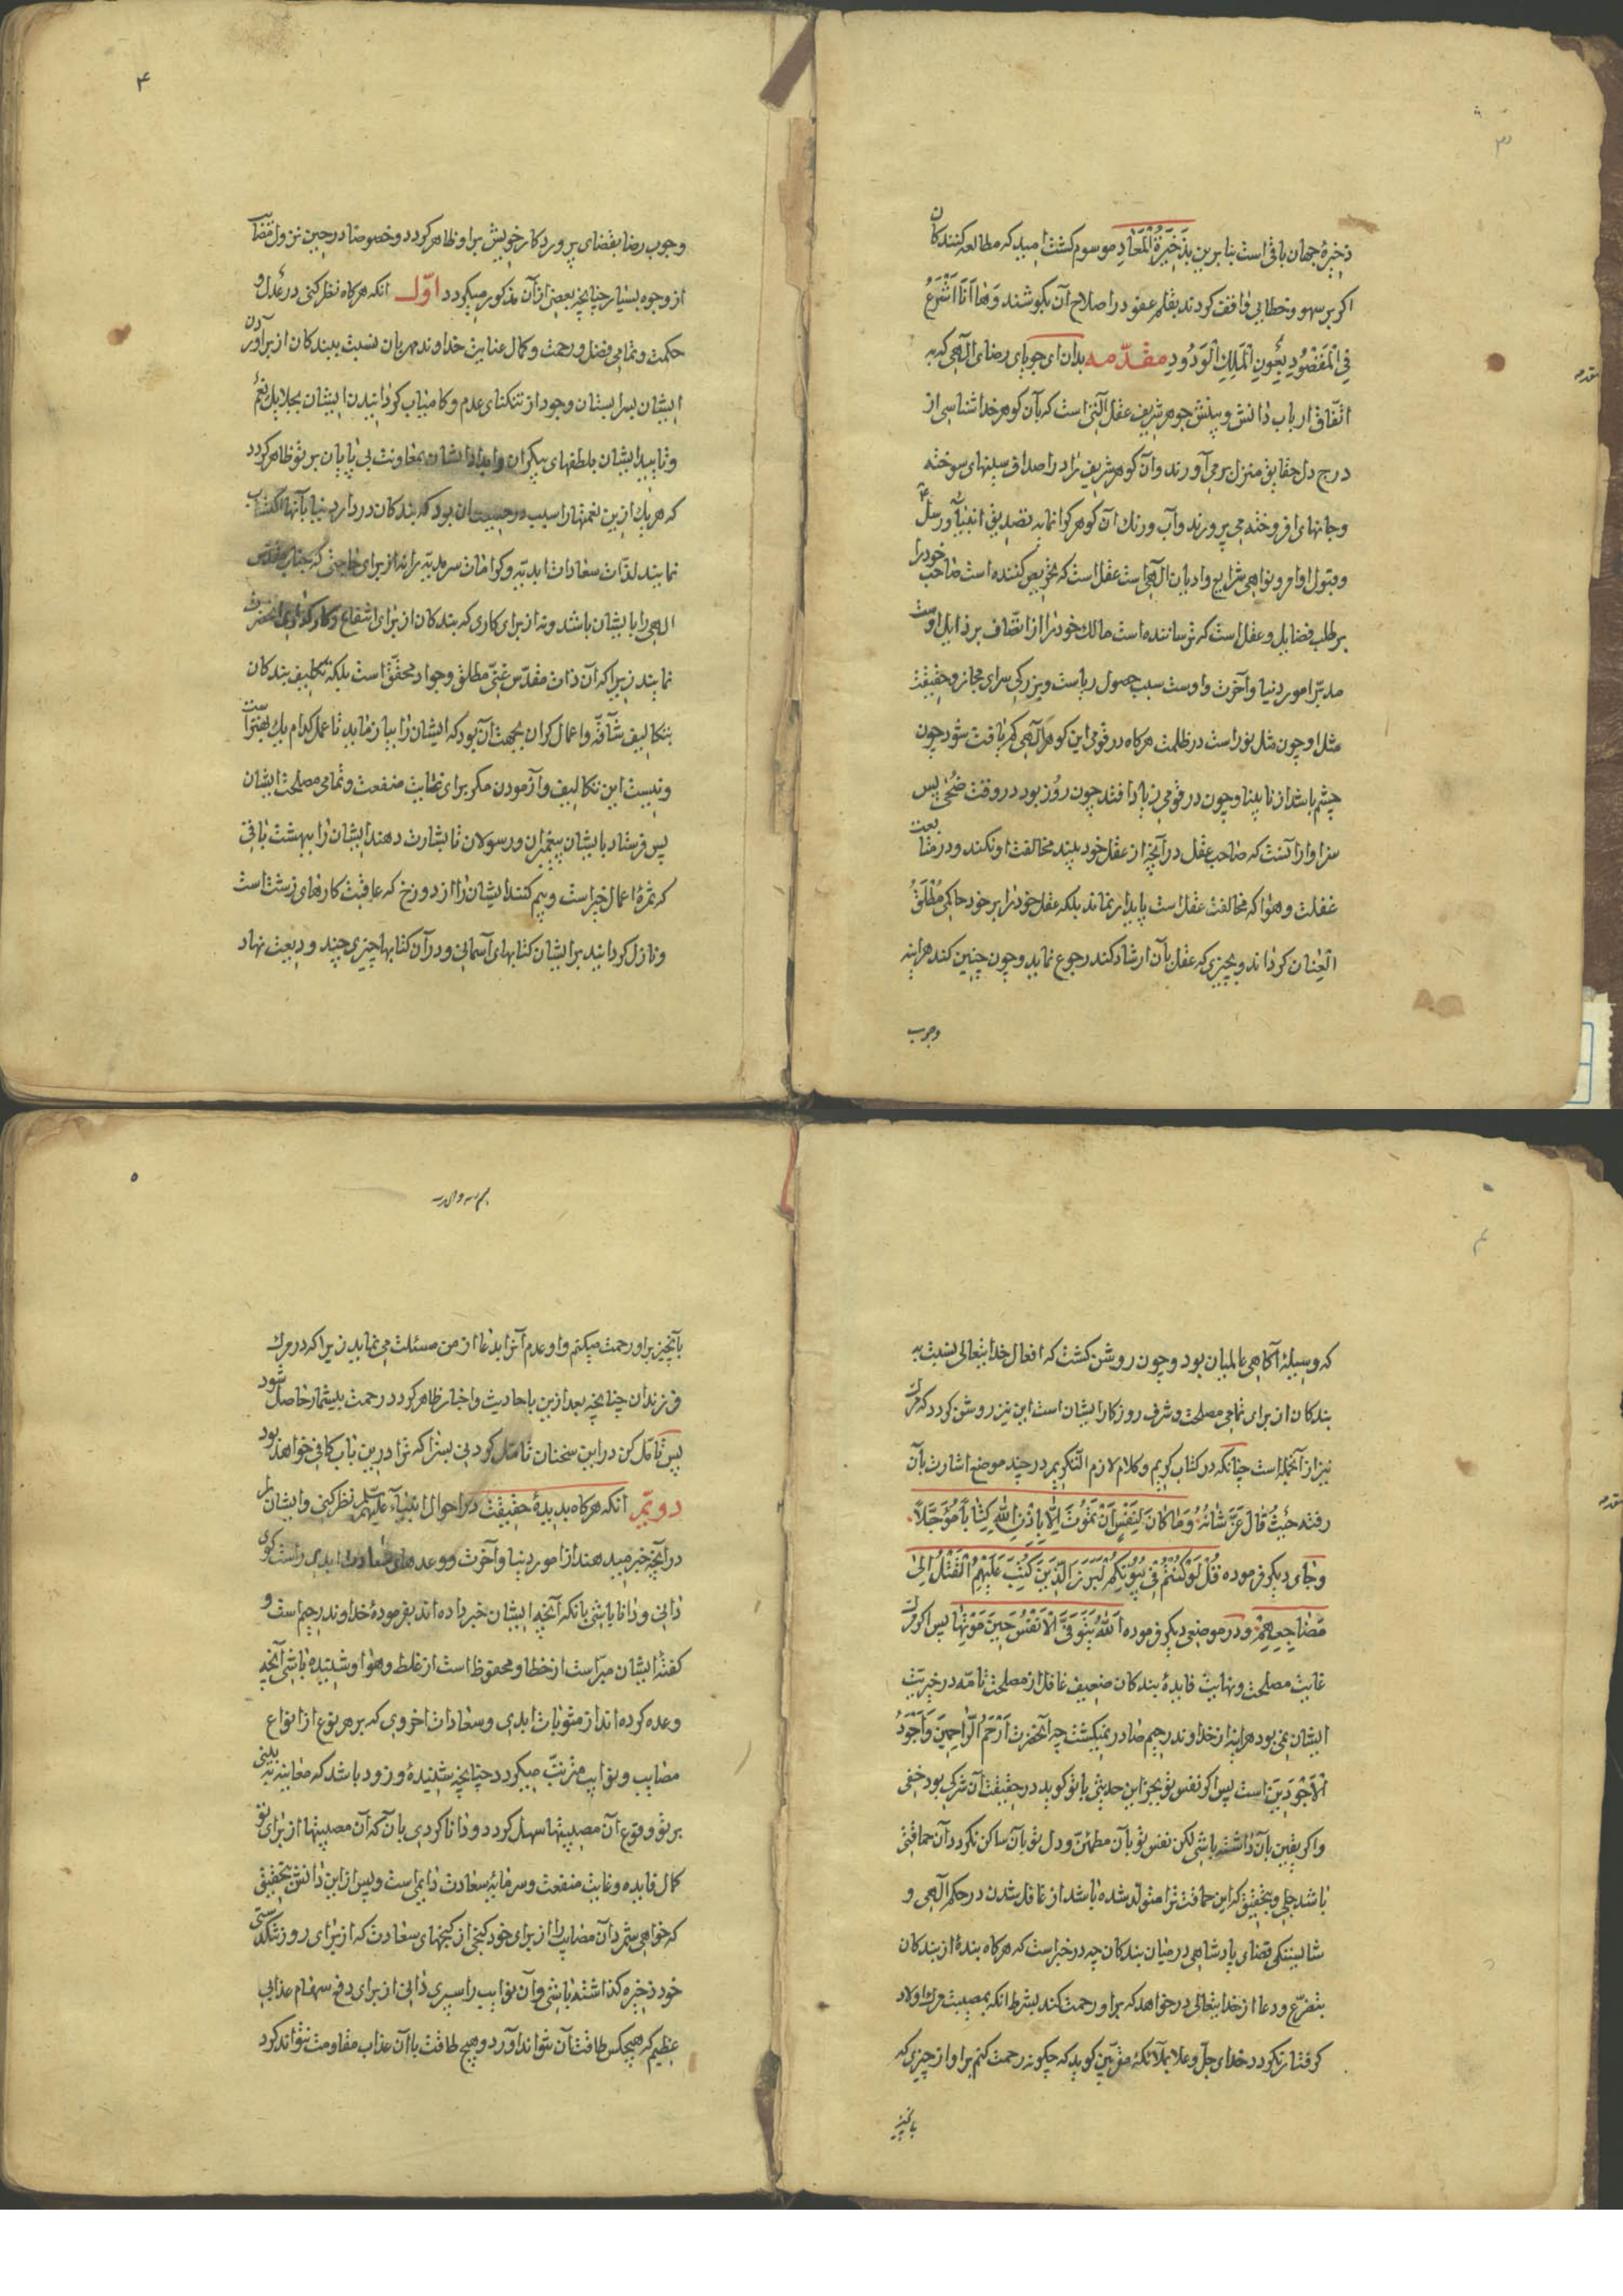 ذخیرهٔ جهان باقی است بنا برین بذَخیرَةُ الْمَعٰادِ موسوم کشت امید که مطالعه کنندکان
اکر بر سهو و خطایی واقف کردند بقلم عفو در اصلاح آن بکوشند وَهٰا اَنَا اَشْرَعُ
فِی الْمَقْصُودِ بِعَونِ الْمَلِکِ الْوَدُودِ مقدّمه بدان ای جویای رضای الهی که به
اتّفاق ارباب دانش و بینش جوهر شریف عقل آلتی است که بآن کوهر خداشناسی از
درج دل حقایق منزل برمی آورند وآن کوهر شریف را در اصداف سینهای سوخته
وجانهای افروخته می پرورند وآب ورنک آن کوهر کرانمایه تصدیق انبیآء ورسل
وقبول اوامر ونواهی شرایع وادیان الهی است عقل است که تحریص کننده است صاحب خود را
بر طلب فضایل وعقل است که ترساننده است مالک خود را از اتّصاف برذایل اوست
مدبّر امور دنیا وآخرت واوست سبب حصول ریاست وبزرکی سرای مجاز وحقیقت
مثل او چون مثل نور است در ظلمت هرکاه در قومی این کوهر آلهی کم یافت شود چون
چشم باشد از نابینا وچون در قومی زیاد افتد چون روز بود در وقت ضُحٰی پس
سزاوار آنست که صاحب عقل در آنچه از عقل خود بیند مخالفت او نکند ودر متابعت
غفلت وهوا که مخالفت عقل است پایدار نماند بلکه عقل خود را بر خود حاکم مُطْلَقُ
الْعِنان کرداند وبچیزی که عقل بآن ارشاد کند رجوع نماید وچون چنین کند هراینه
وجوب
۴
وجوب رضا بقضای پروردکار خویش بر او ظاهر کردد وخصوصا در حین نزول مصایب
از وجوه بسیار چنانچه بعضی از آن مذکور میکردد اوّل انکه هرکاه نظر کنی در عدل و
حکمت وتمامی فضل ورحمت وکمال عنایت خداوند مهربان نسبت ببندکان از برآوردن
ایشان بسرابستان وجود از تنکنای عدم وکامیاب کردانیدن ایشان بجلایل نعم
وتایید ایشان بلطفهای بیکران وامداد ایشان بمعاونت بی پایان بر تو ظاهر کردد
که هر یک ازین نعمتها را سبب در حقیقت ان بود که بندکان در دار دنیا بآنها اکتساب
نمایند لذّات سعادات ابدیّه وکرامات سرمدیّه را نه از برای حاجتی که جناب مقدّس
الهی را بایشان باشد ونه از برای کاری که بندکان از برای انتفاع
نمایند زیرا که آن ذات مقدّس غنیّ مطلق وجواد محقّق است بلکه تکلیف بندکان
بتکالیف شآقّه واعمال کران بجهت آن بود که ایشان را بیازماید تا عمل کدام یک بهتر است
ونیست این تکالیف وآزمودن مکر برای نهایت منفعت وتمامی مصلحت ایشان
پس فرستاد بایشان پیغمبران ورسولان تا بشارت دهند ایشان را ببهشت باقی
که ثمرهٔ اعمال خیر است وبیم کنند ایشان را از دوزخ که عاقبت کارهای زشت است
ونازل کردانید بر ایشان کتابهای آسمانی ودر آن کتابها چیزی چند ودیعت نهاد
که وسیلهٔ آکاهی عالمیان بود وچون روشن کشت که افعال خدایتعالی نسبت به
بندکان از برای تمامی مصلحت وشرف روزکار ایشان است این نیز روشن کردد که مرک
نیز از آنجمله است چنانکه در کتاب کریم وکلام لازم التّکریم در چند موضع اشارت بآن
رفته حَیْثُ قٰالَ عَزَّ شَانُهُ وَمٰا کٰانَ لِنَفْسٍ اَنْ تَمُوتَ اِلّٰا بِاِذْنِ اللّٰهِ کِتٰاباً مُؤَجَّلاً
وجای دیکر فرموده قُلْ لَوْ کُنْتُمْ فی بُیُوتِکُمْ لَبَرَزَ الَّذینَ کُتِبَ عَلَیْهِمُ الْقَتْلُ اِلیٰ
مَضٰاجِعِهِمْ ودر موضعی دیکر فرموده اَللّٰهُ یَتَوَفَّی الْاَنْفُسَ حینَ مَوْتِهٰا پس اکر مرک
غایت مصلحت ونهایت فایدهٔ بندکان ضعیف غافل از مصلحت تامّه در خیریّت
ایشان نمی بود هراینه از خداوند رحیم صادر نمیکشت چه آنحضرت اَرْحَمُ الرّٰاحِمینَ وَاَجْوَدُ
الْاَجْوَدینَ است پس اکر نفس تو بجز این حدیثی با تو کوید در حقیقت آن شرکی بود خفی
واکر یقین بآن داشته باشی لکن نفس تو بآن مطمئن ودل تو بآن ساکن نکردد آن حماقتی
باشد جلی وبتحقیق که این حماقت ترا متولد شده باشد از غافل شدن در حکم آلهی و
شایستکی قضای پادشاهی در میان بندکان چه در خبر است که هرکاه بندهٔ از بندکان
بتضرّع ودعا از خدایتعالی درخواهد که بر او رحمت کند بشرط انکه بمصیبت مرک اولاد
کرفتار نکردد خدای جلّ وعلا بملآئکهٔ مقرّبین کوید که چکونه رحمت کنم بر او از چیزی که
بانچیز
۵
بآنچیز بر او رحمت میکنم واو عدم آنرا بدعا از من مسئلت می نماید زیرا که در مرک
فرزندان چنانچه بعد ازین باحادیث واخبار ظاهر کردد رحمت بیشمار حاصل شود
پس تامّل کن در این سخنان تامّل کردنی بسزا که ترا درین باب کافی خواهد بود
دویّم انکه هرکاه بدیدهٔ حقیقت در احوال انبیآء علیهم السّلم نظر کنی وایشان را
در آنچه خبر میدهند از امور دنیا وآخرت ووعدهای سعادت ابدی راست کوی
دانی ودانا باشی بانکه آنچه ایشان خبر داده اند بفرمودهٔ خداوند رحیم است و
کفتهٔ ایشان مبرّاست از خطا ومحفوظ است از غلط وهوا وشنیده باشی آنچه
وعده کرده اند از مثوبات ابدی وسعادات اخروی که بر هر نوع از انواع
مصایب ونوایب مترتّب میکردد چنانچه شنیدهٔ وزود باشد که معاینه نیز بینی
بر تو وقوع آن مصیبتها سهل کردد ودانا کردی بآن که آن مصیبتها از برای تو
کمال فایده وغایت منفعت وسرمایهٔ سعادت دایمی است وپس از این دانش بتحقیق
که خواهی شمرد آن مصایب را از برای خود کنجی از کنجهای سعادت که از برای روز تنکدستی
خود ذخیره کذاشته باشی وآن نوایب را سپری دانی از برای دفع سهام عذابی
عظیم که هیچکس طاقت آن نتواند آورد وهیچ طاقت با آن عذاب مقاومت نتواند کرد